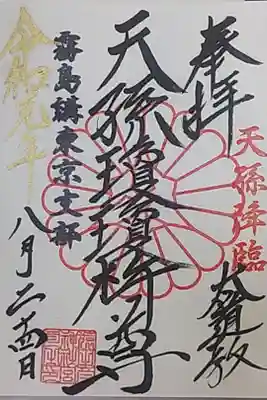 奉拝
天孫降臨
大道教
天孫瓊瓊杵尊
霧島講東京支部
令和元年
八月二十四日